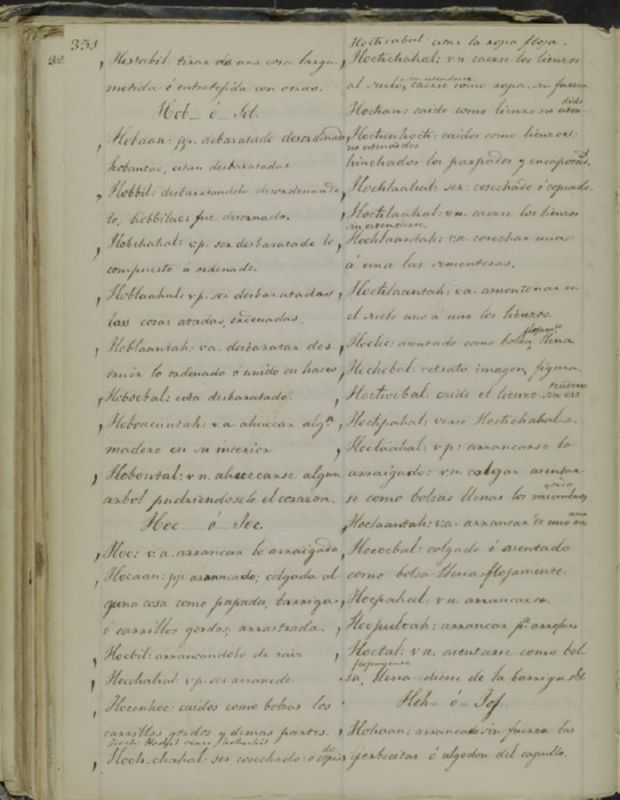 331
32
Histabil: tirar de una cosa larga
metida ó entretejida con otras.
Hob_ ó_ Jot.
Hobaan: pp. desbaratado desordenado
estan desbaratadas
Hobbil: desbaratandolo desordenando
lo, hobbilac: fue desornado.
Hobchahal: v.p. ser desbaratado lo
compuesto ú ordenado.
Hoblaahal: v.p. ser desbaratadas
las cosas atadas, ordenadas.
Hoblaantah: v.a. desbaratar des-
truir lo ordenado ó unido en haces
Hobocbal: esta desbaratado.
v.a. ahuecar alg.n
madero en su interior
Hobontal: v.n. ahuecarse algun
arbol pudriendosele el corazon.
Hoc_ ó_ Joc.
Hoc: v.a. arrancar lo arraigado
Hocaan: pp. arrancado; colgada al-
guna cosa como papada, barriga,
ó carrillos gordos, arrastrada.
Hocbil: arrancandolo de raiz
Hocchahal: v.p. ser arrancado
Hocenhoc: caidos como bolsas los
carrillos gordos y demas partes.
Hoch-chahal: ser cosechado ó
Hoctecabal: estar la ropa floja.
Hoctchahal: v.n. caerse los lienzos
al suelo, caerse como ropa sin fuerza
Hochan: caido como lienzo no esten-
dido
Hoctenhoct: caidos como lienzos:
no estendidos
hinchados los parpados y encapotad.s
Hochlaahal: ser: cosechado ó copiado.
Hoctlaahal: v.n. caerse los lienzos
sin estenderse.
Hochlaantah: v.a. cosechar una
á una las sementeras.
Hoctlaantah: v.a. amontonar en
el suelo uno á uno los lienzos.
Hoclic: asentado como bolsa llena.
Hochebal retrato, imagen, figura.
Hoctocbal: caido el lienzo sin
Hoctpahal: vease Hoctchahal.
Hoclaahal: v.p: arrancarse lo
arraigado: v.n. colgar asentar-
se como bolsas llenas los miembros
Hoclaantah: v.a. arrancar de uno en
uno
Hococbal: colgado ó asentado
como bolsa llena flojamente.
Hocpahal: v.n. arrancarse.
Hocpultah: arrancar
Hoctal: v.n. asentarse como bol-
sa, llena dicese de la barriga &c
Hoh_ ó_ Jof.
Hohaan: arrancado sin fuerza las
yerbecitas ó algodon del capullo.